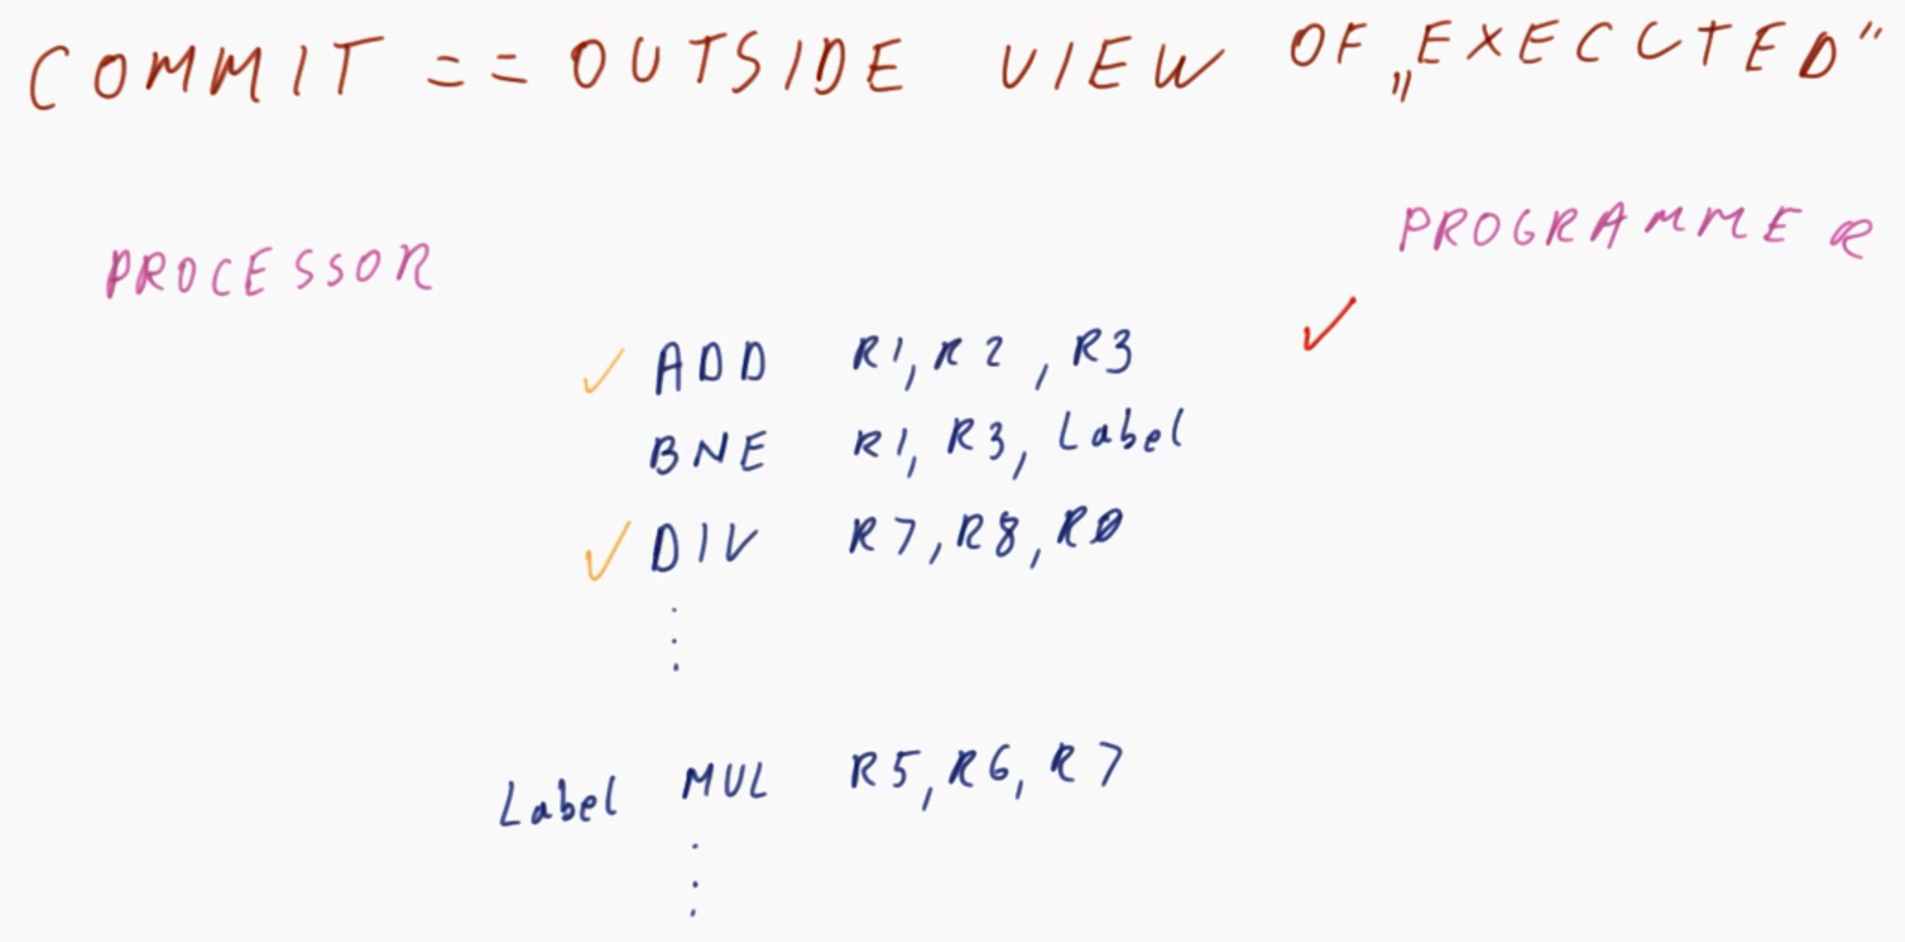 COMMIT == OUTSIDE VIEW OF „EXECUTED"
PROCESSOR PROGRAMMER
✓ ADD R1, R2, R3 ✓
BNE R1, R3, Label
✓ DIV R7, R8, R0
⋮
Label MUL R5, R6, R7
⋮